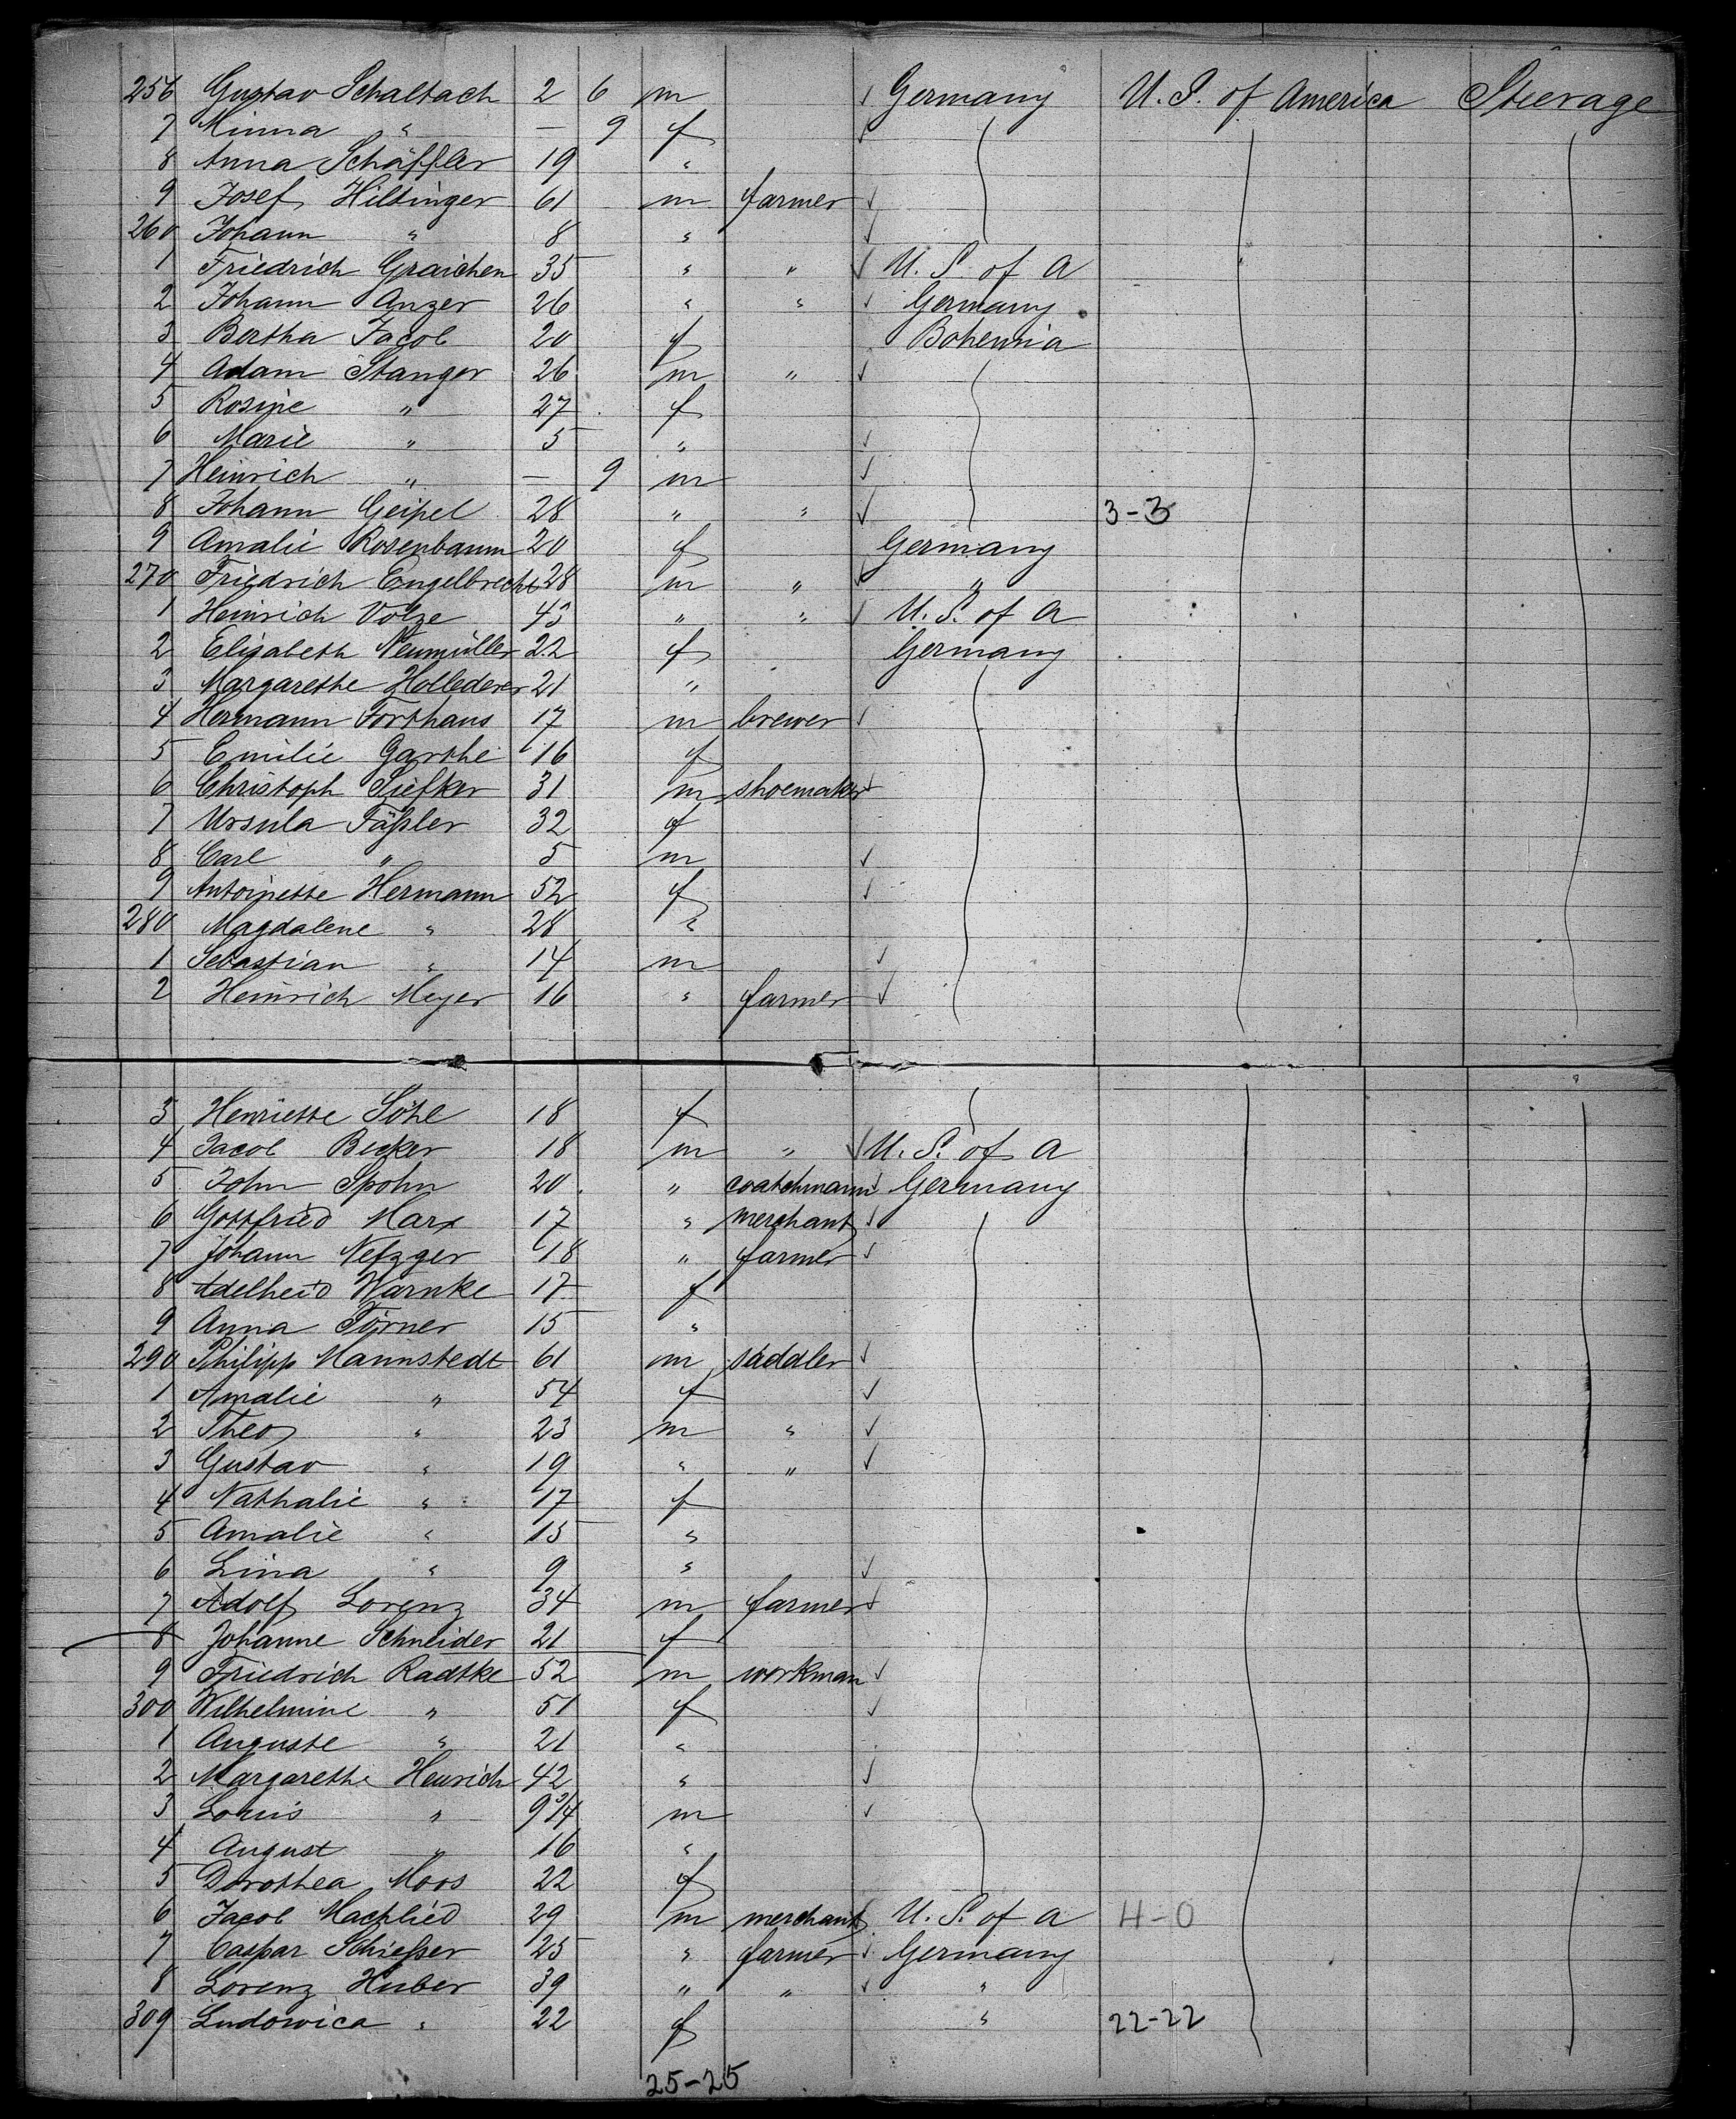 256 Gustav Schaltach 2 6 m ✓ Germany U. S. of America Steerage
7 Minna " — 9 f ✓
8 Anna Schäffler 19 "
9 Josef Hiltinger 61 m farmer ✓
260 Johann " 8 " ✓
1 Friedrich Graichen 35 " " ✓ U. S. of A
2 Johann Anzer 26 " " ✓ Germany
3 Bertha Jacob 20 f Bohemia
4 Adam Stanger 26 m " ✓
5 Rosine " 27 f
6 Marie " 5 " ✓
7 Heinrich " — 9 m ✓
8 Johann Geipel 28 " " ✓ 3-3
9 Amalie Rosenbaum 20 f Germany
270 Friedrich Engelbrecht 28 m " ✓ "
1 Heinrich Volze 43 " " ✓ U. S. of A
2 Elisabeth Neumüller 22 f Germany
3 Margarethe Hollederer 21 "
4 Hermann Forthaus 17 m brewer ✓
5 Emilie Garthe 16 f
6 Christoph Siefker 31 m shoemaker ✓
7 Ursula Fäßler 32 f
8 Carl " 5 m ✓
9 Antoinette Hermann 52 f ✓
280 Magdalene " 28 "
1 Sebastian " 14 m ✓
2 Heinrich Meyer 16 " farmer ✓
3 Henriette Söhl 18 f
4 Jacob Becker 18 m " ✓ U. S. of A
5 John Spohn 20 " coatchmann ✓ Germany
6 Gottfried Marx 17 " merchant ✓
7 Johann Nefzger 18 " farmer ✓
8 Adelheid Warnke 17 f
9 Anna Törner 15 "
290 Philipp Mannstedt 61 m saddler ✓
1 Amalie " 54 f ✓
2 Theo " 23 m " ✓
3 Gustav " 19 " " ✓
4 Nathalie " 17 f
5 Amalie " 15 "
6 Lina " 9 " ✓
7 Adolf Lorenz 34 m farmer ✓
8 Johanne Schneider 21 f
9 Friedrich Radtke 52 m workman ✓
300 Wilhelmine " 51 f ✓
1 Auguste " 21 "
2 Margarethe Heinrich 42 " ✓
3 Louis " 9 3/4 m ✓
4 August " 16 "
5 Dorothea Moos 22 f
6 Jacob 29 m merchant U. S. of A 4-0
7 Caspar Schießer 25 " farmer ✓ Germany
8 Lorenz Huber 39 " " ✓ "
309 Ludowica " 22 f " 22-22
25-25